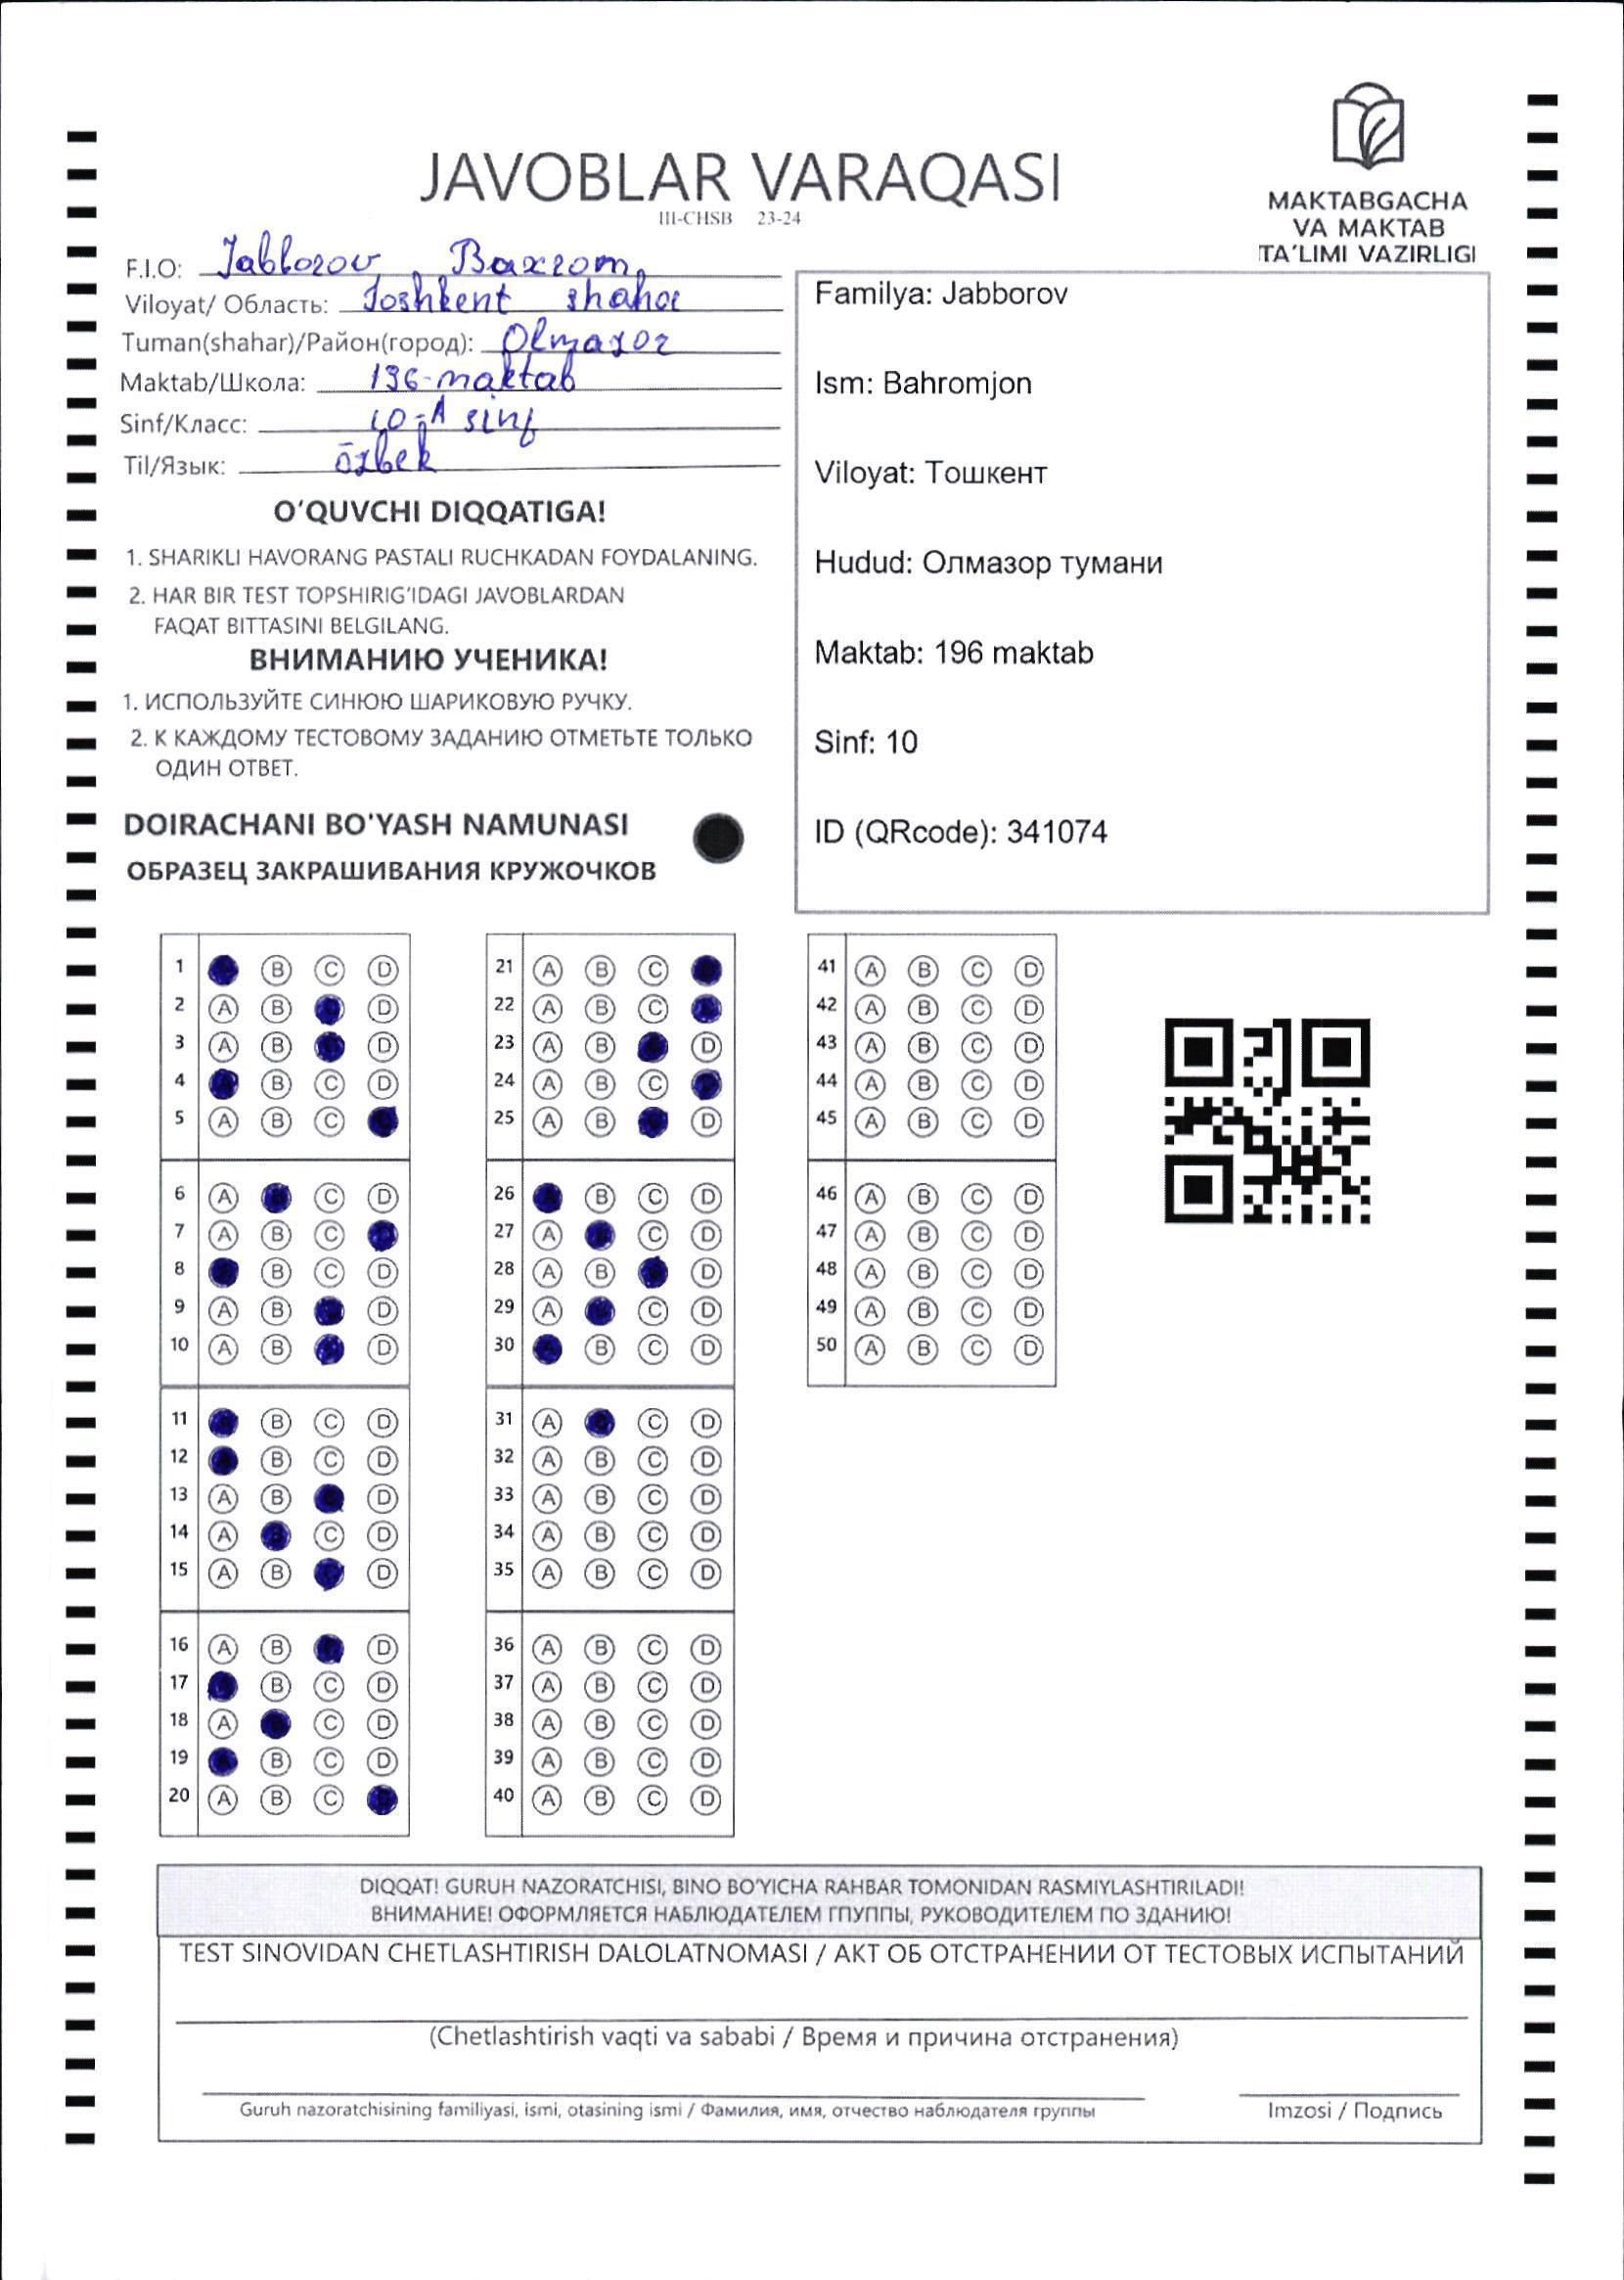 JAVOBLAR VARAQASI
III-CHSB 23-24
MAKTABGACHA
VA MAKTAB
TA'LIMI VAZIRLIGI
F.I.O: Jabborov Baxrom
Viloyat/ Область: Toshkent shahar
Tuman(shahar)/Район(город): Olmazor
Maktab/Школа: 196-maktab
Sinf/Класс: 10-A sinf
Til/Язык: õzbek
Familya: Jabborov
Ism: Bahromjon
Viloyat: Тошкент
Hudud: Олмазор тумани
Maktab: 196 maktab
Sinf: 10
ID (QRcode): 341074
O'QUVCHI DIQQATIGA!
1. SHARIKLI HAVORANG PASTALI RUCHKADAN FOYDALANING.
2. HAR BIR TEST TOPSHIRIG'IDAGI JAVOBLARDAN
FAQAT BITTASINI BELGILANG.
ВНИМАНИЮ УЧЕНИКА!
1. ИСПОЛЬЗУЙТЕ СИНЮЮ ШАРИКОВУЮ РУЧКУ.
2. К КАЖДОМУ ТЕСТОВОМУ ЗАДАНИЮ ОТМЕТЬТЕ ТОЛЬКО
ОДИН ОТВЕТ.
DOIRACHANI BO'YASH NAMUNASI
ОБРАЗЕЦ ЗАКРАШИВАНИЯ КРУЖОЧКОВ
1 B C D
2 A B D
3 A B D
4 B C D
5 A B C
6 A C D
7 A B C
8 B C D
9 A B D
10 A B D
11 B C D
12 B C D
13 A B D
14 A C D
15 A B D
16 A B D
17 B C D
18 A C D
19 B C D
20 A B C
21 A B C
22 A B C
23 A B D
24 A B C
25 A B D
26 B C D
27 A C D
28 A B D
29 A C D
30 B C D
31 A C D
32 A B C D
33 A B C D
34 A B C D
35 A B C D
36 A B C D
37 A B C D
38 A B C D
39 A B C D
40 A B C D
41 A B C D
42 A B C D
43 A B C D
44 A B C D
45 A B C D
46 A B C D
47 A B C D
48 A B C D
49 A B C D
50 A B C D
DIQQAT! GURUH NAZORATCHISI, BINO BO'YICHA RAHBAR TOMONIDAN RASMIYLASHTIRILADI!
ВНИМАНИЕ! ОФОРМЛЯЕТСЯ НАБЛЮДАТЕЛЕМ ГПУППЫ, РУКОВОДИТЕЛЕМ ПО ЗДАНИЮ!
TEST SINOVIDAN CHETLASHTIRISH DALOLATNOMASI / АКТ ОБ ОТСТРАНЕНИИ ОТ ТЕСТОВЫХ ИСПЫТАНИЙ
(Chetlashtirish vaqti va sababi / Время и причина отстранения)
Guruh nazoratchisining familiyasi, ismi, otasining ismi / Фамилия, имя, отчество наблюдателя группы
Imzosi / Подпись